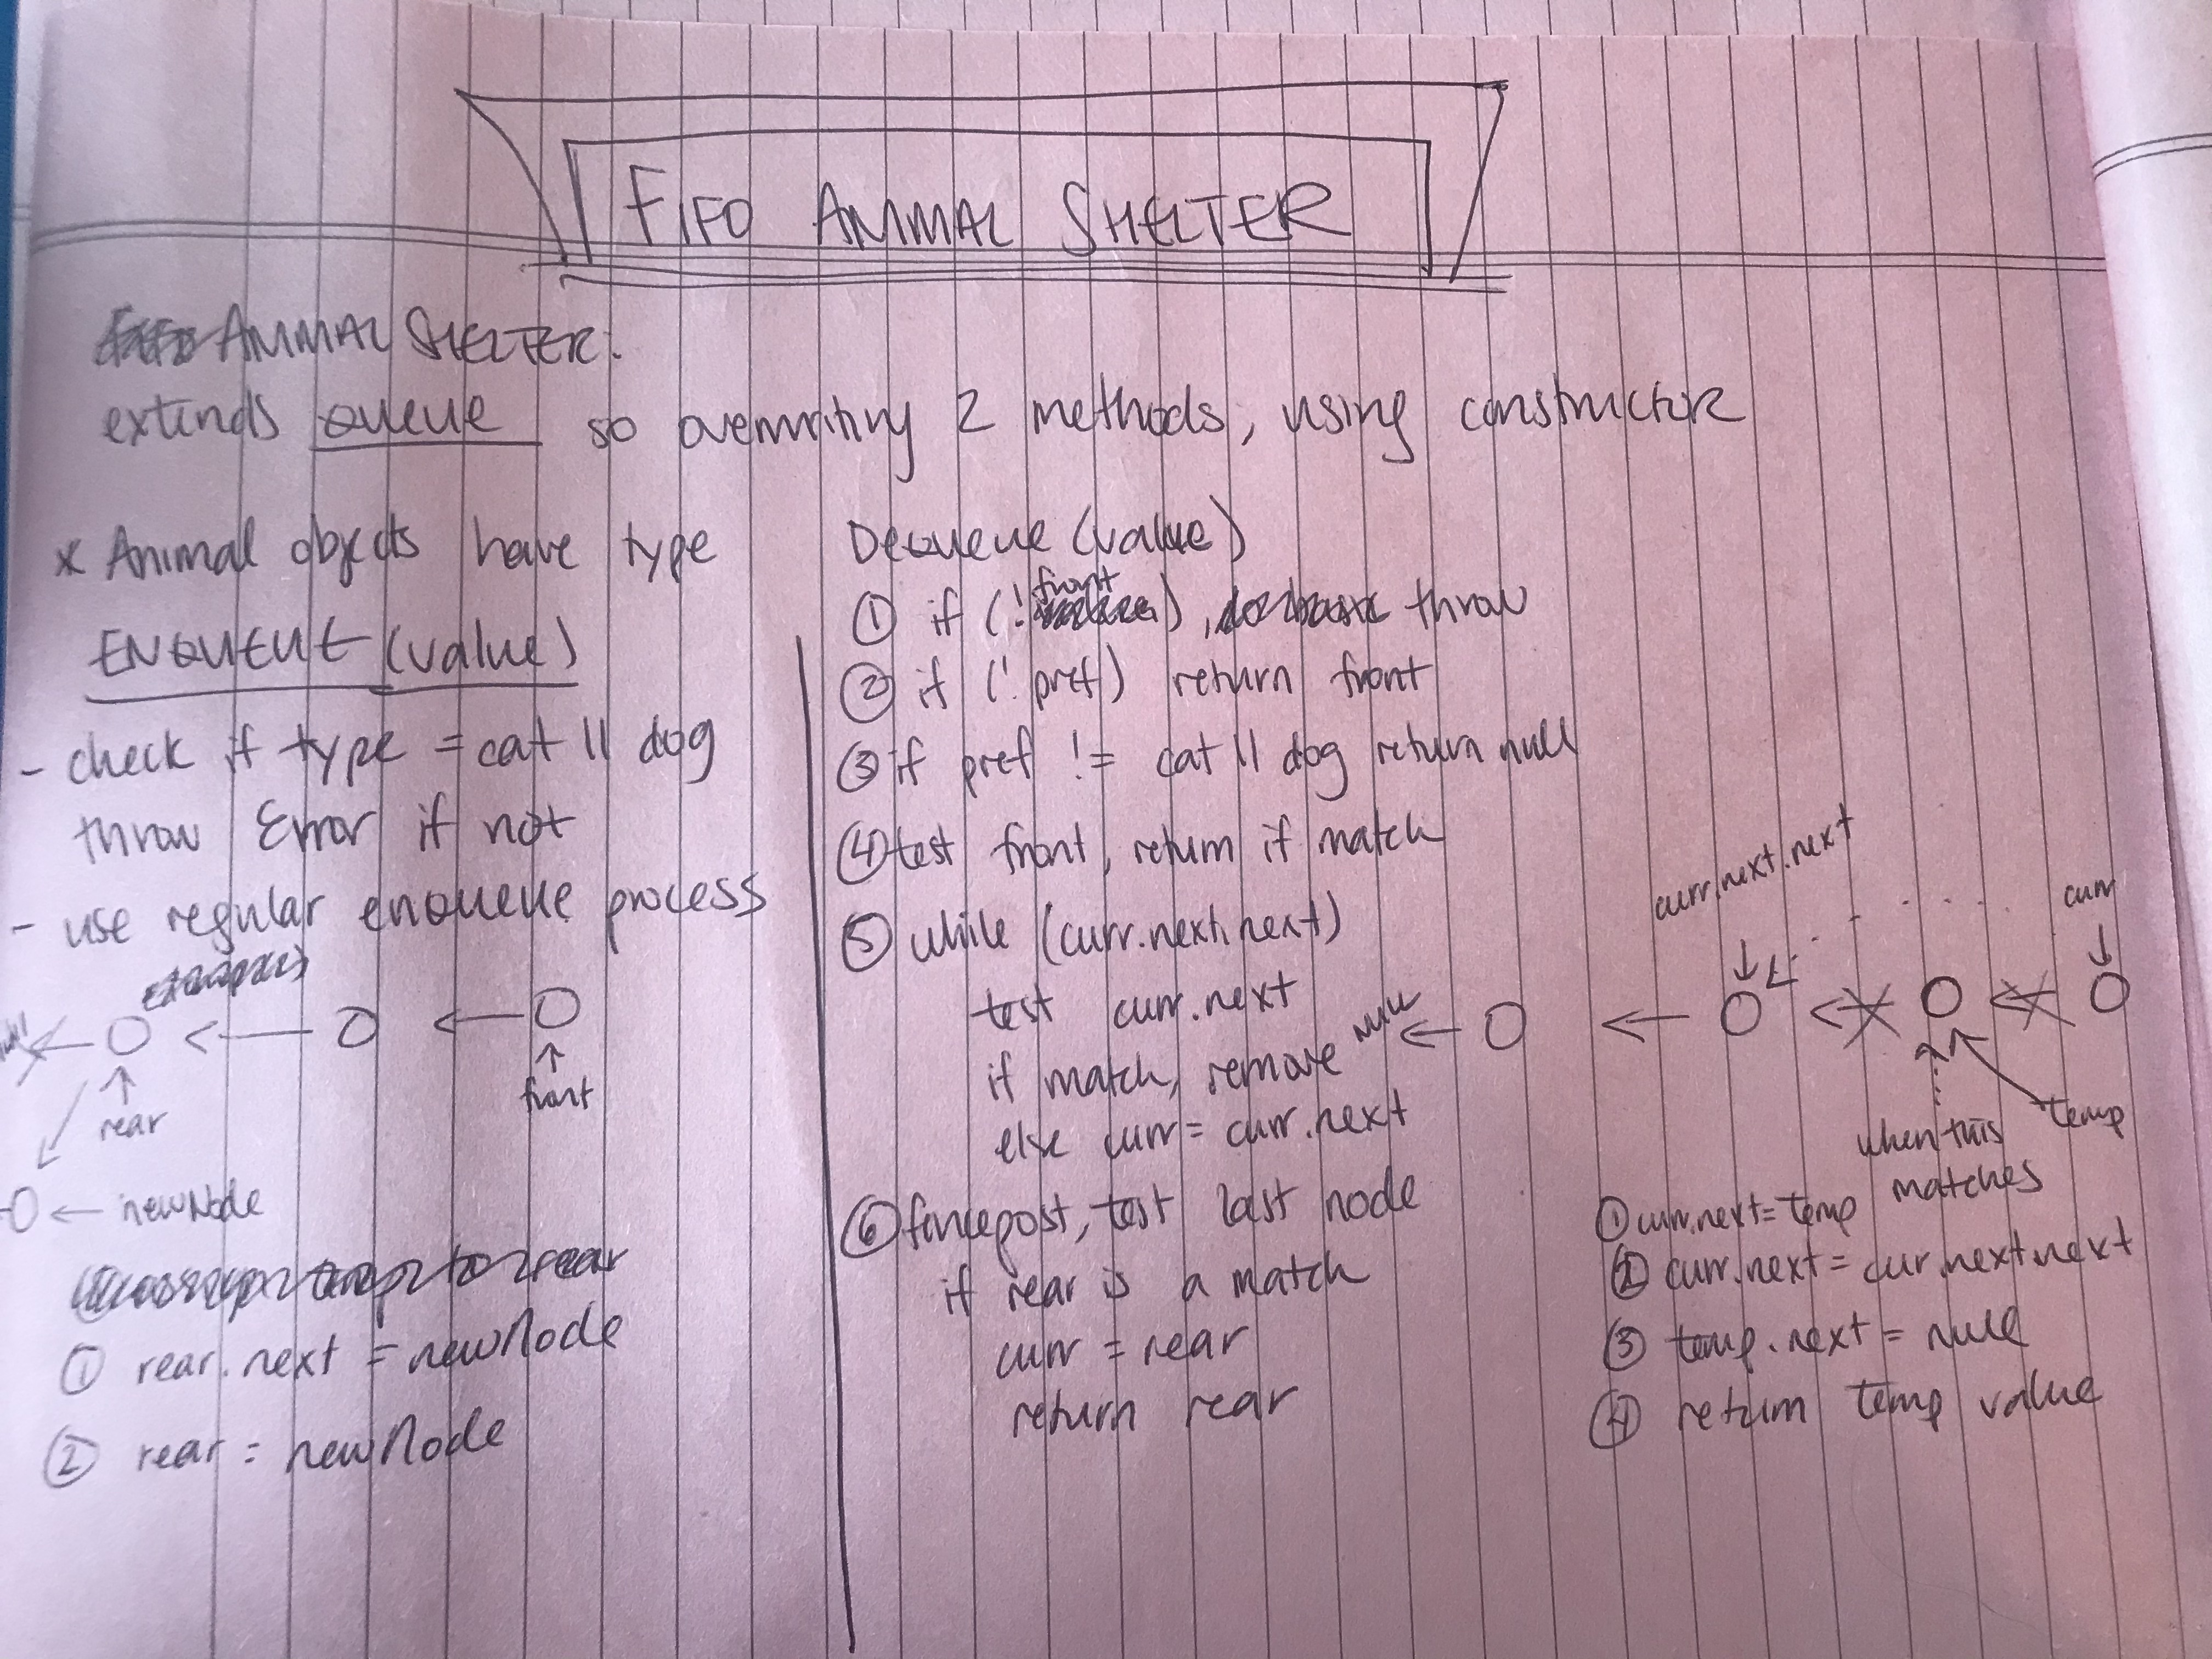 FIFO ANIMAL SHELTER
ANIMAL SHELTER:
extends queue so overwriting 2 methods, using constructor
* Animal objects have type
ENQUEUE (value)
- check if type = cat || dog
throw Error if not
- use regular enqueue process
null
rear
front
newNode
① rear.next = newNode
② rear = newNode
Dequeue (value)
① if (!front), throw
② if (!pref) return front
③ if pref != cat || dog return null
④ test front, return if match
⑤ while (curr.next.next)
test curr.next
if match, remove
else curr = curr.next
⑥ fencepost, test last node
if rear is a match
curr = rear
return rear
curr.next.next
curr
NULL
when this
matches
temp
① curr.next = temp
② curr.next = cur.next.next
③ temp.next = null
④ return temp value